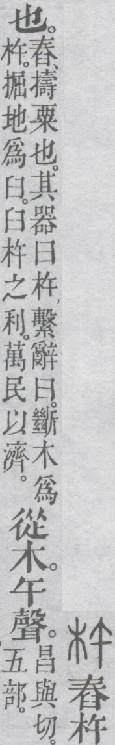 杵舂杵
也。
舂、擣粟也。其器曰杵。繫辭曰。斷木爲
杵。掘地爲臼。臼杵之利。萬民以濟。
從木。午聲。
昌與切。
五部。